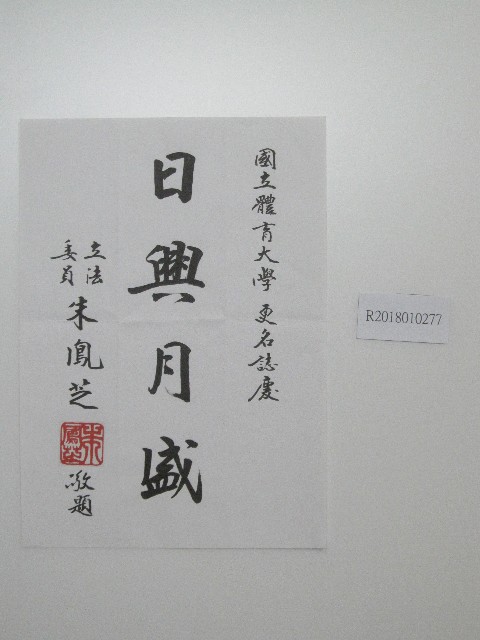 國立體育大學 更名誌慶
日興月盛
立法委員 朱鳳芝 敬題
朱鳳芝
R2018010277